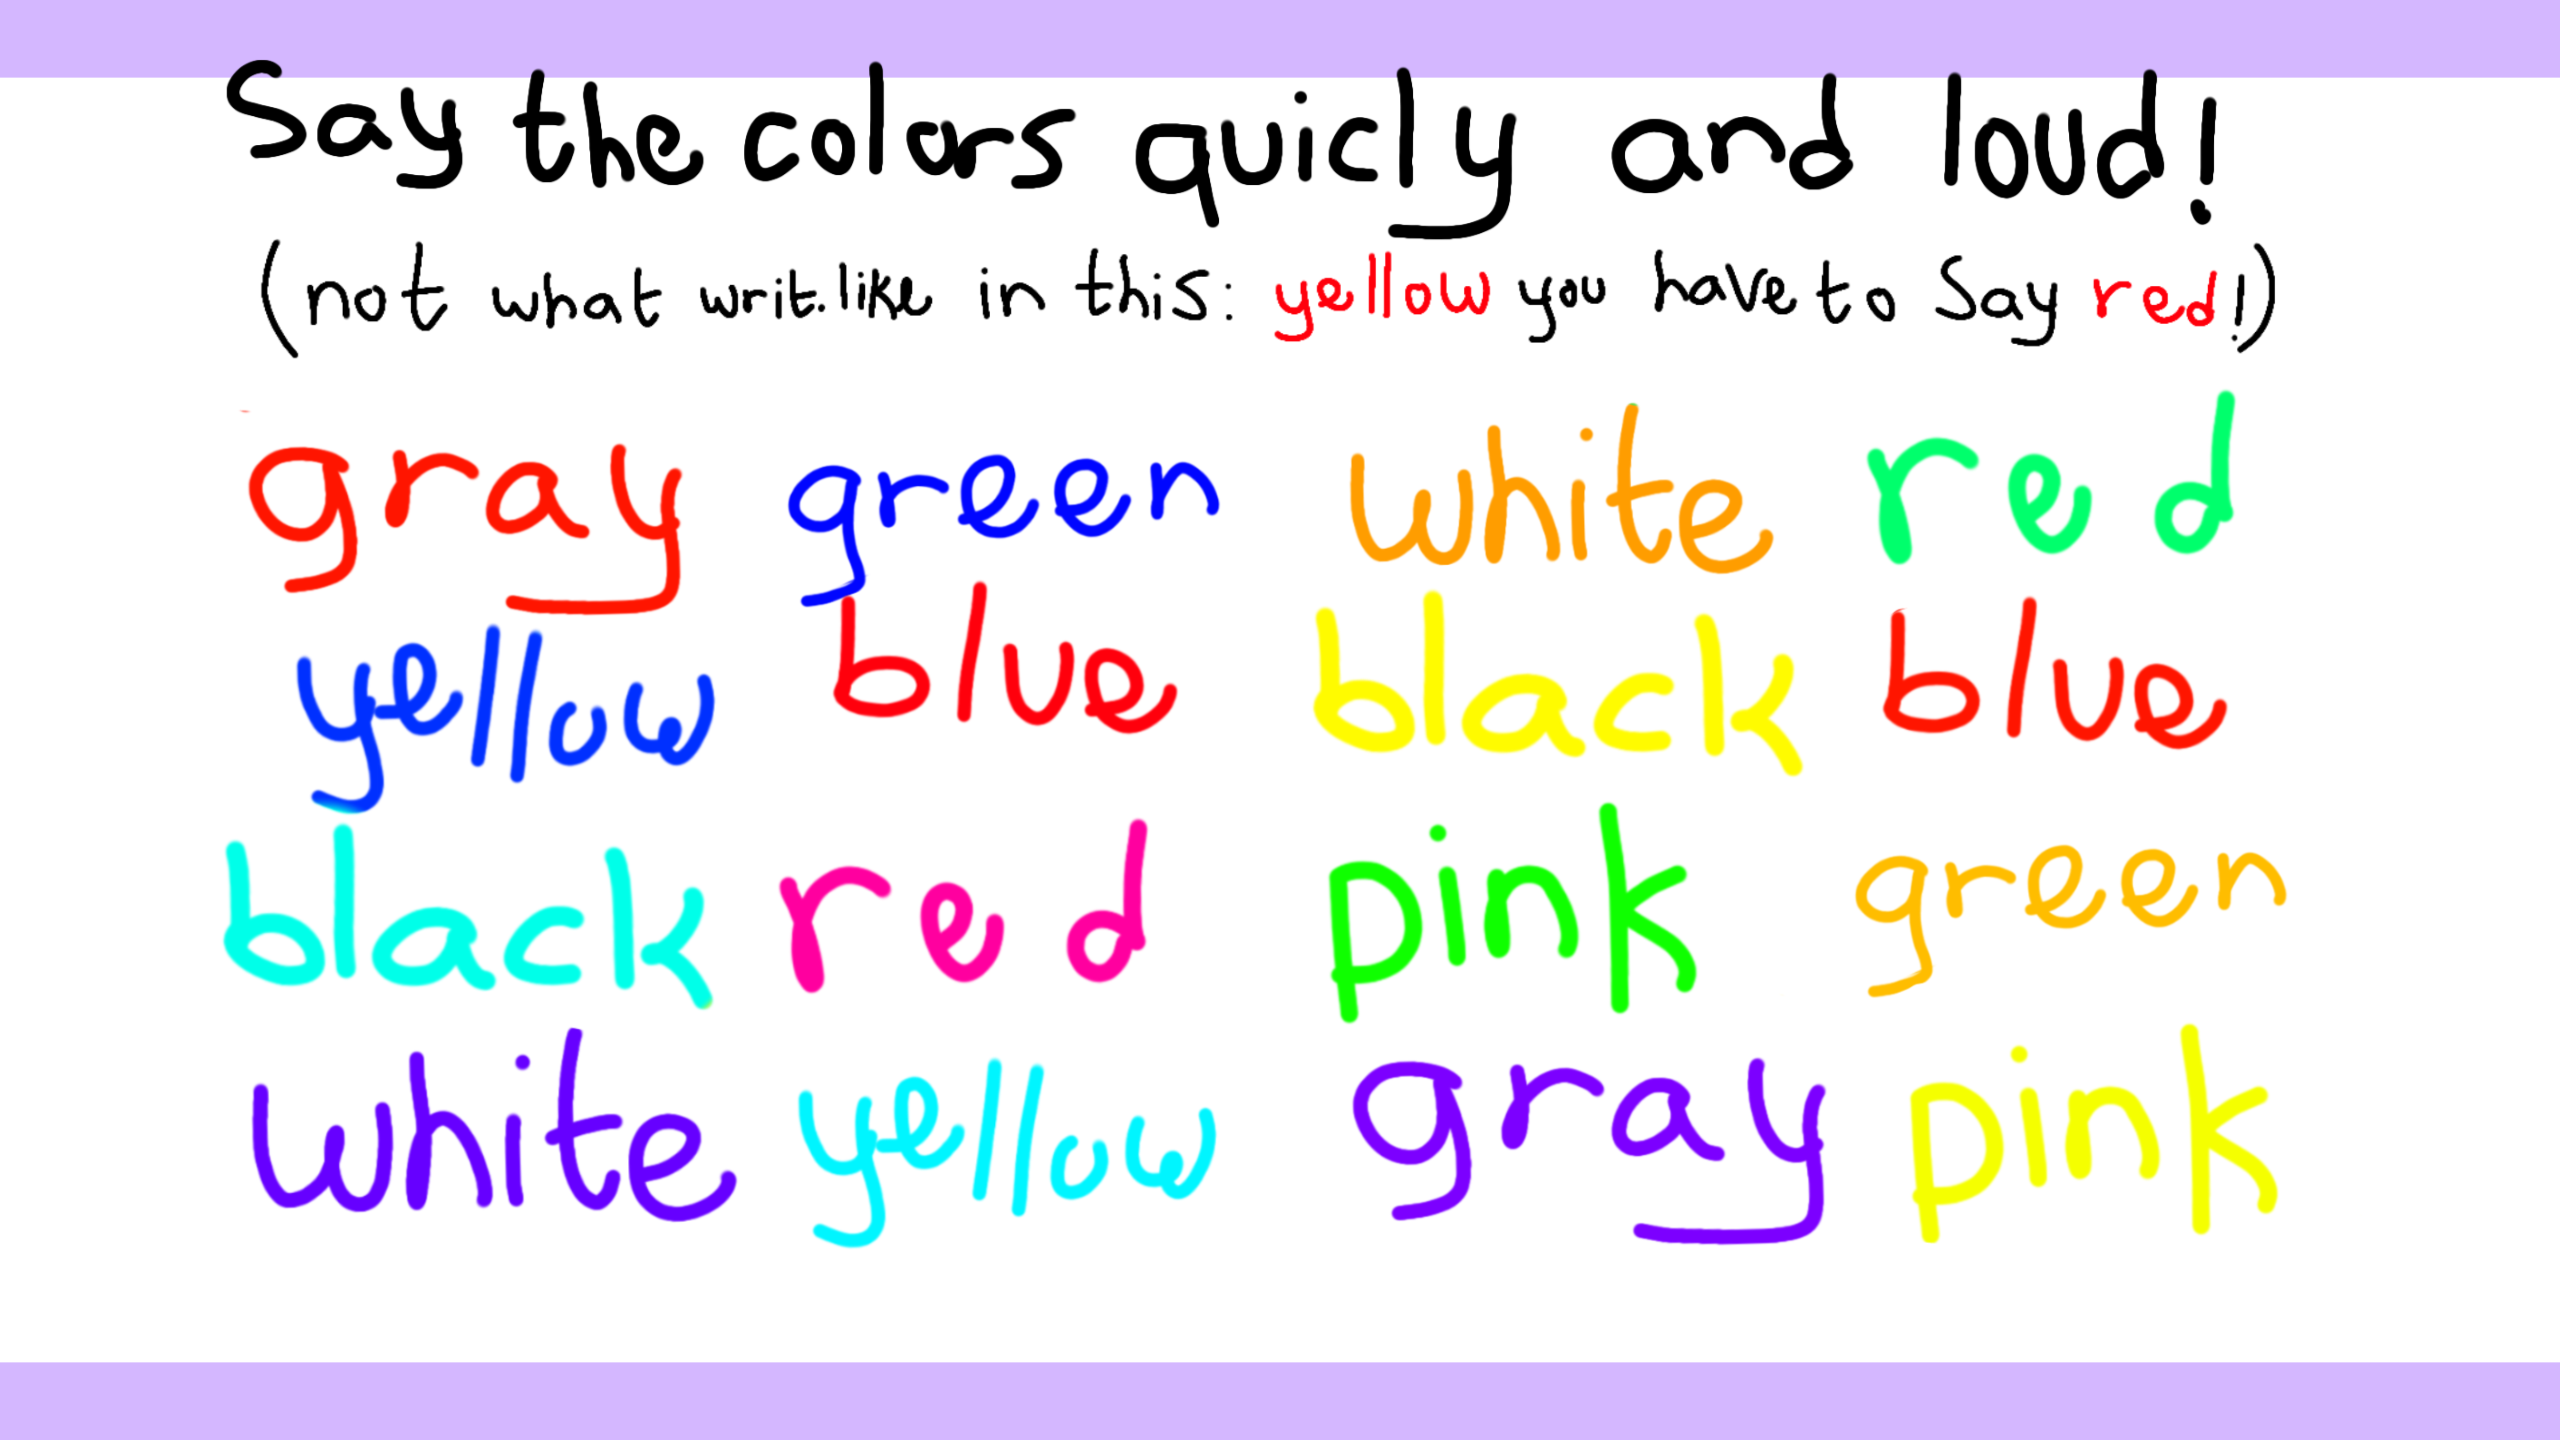 Say the colors quicly and loud!
(not what writ. like in this: yellow you have to say red!)
gray green white red
yellow blue black blue
black red pink green
white yellow gray pink